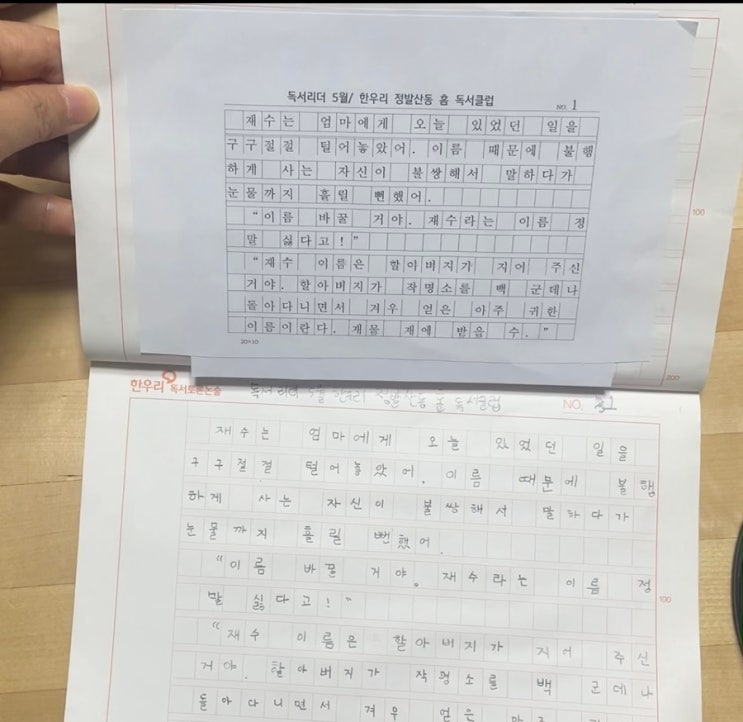 독서리더 5월/ 한우리 정발산동 홈 독서클럽
NO. 1
재수는 엄마에게 오늘 있었던 일을
구구절절 털어놓았어. 이름 때문에 불행
하게 사는 자신이 불쌍해서 말하다가
눈물까지 흘릴 뻔했어.
“이름 바꿀 거야. 재수라는 이름 정
말 싫다고!”
“재수 이름은 할아버지가 지어 주신
거야. 할아버지가 작명소를 백 군데나
돌아다니면서 겨우 얻은 아주 귀한
이름이란다. 재물 재에 받음 수.”
20×10
100
200
한우리 독서토론논술
독서리더 5월 한우리 정발산동 홈 독서클럽
NO.
재수는 엄마에게 오늘 있었던 일을
구구절절 털어놓았어. 이름 때문에 불행
하게 사는 자신이 불쌍해서 말하다가
눈물까지 흘릴 뻔했어.
“이름 바꿀 거야. 재수라는 이름 정
말 싫다고!”
100
“재수 이름은 할아버지가 지어 주신
거야. 할아버지가 작명소를 백 군데나
돌아다니면서 겨우 얻은